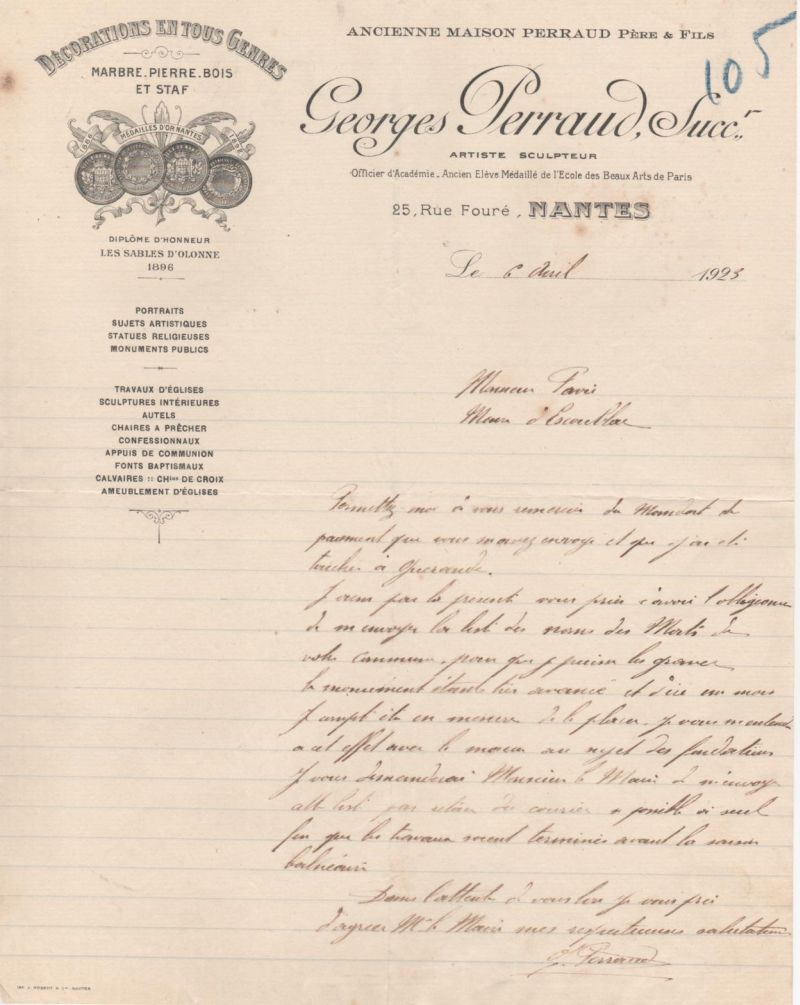 DÉCORATIONS EN TOUS GENRES
MARBRE. PIERRE. BOIS
ET STAF
1886 MÉDAILLES D'OR NANTES
DIPLÔME D'HONNEUR
LES SABLES D'OLONNE
1896
PORTRAITS
SUJETS ARTISTIQUES
STATUES RELIGIEUSES
MONUMENTS PUBLICS
TRAVAUX D'ÉGLISES
SCULPTURES INTÉRIEURES
AUTELS
CHAIRES A PRÊCHER
CONFESSIONNAUX
APPUIS DE COMMUNION
FONTS BAPTISMAUX
CALVAIRES :: CHins DE CROIX
AMEUBLEMENT D'ÉGLISES
ANCIENNE MAISON PERRAUD PÈRE & FILS
105
Georges Perraud, Succr.
ARTISTE SCULPTEUR
Officier d'Académie. Ancien Elève Médaillé de l'Ecole des Beaux Arts de Paris
25, Rue Fouré, NANTES
Le 6 Avril 1923
Monsieur
Maire d'Escoublac
Permettez moi à vous remercier du Mandat de
paiement que vous m'avez envoyé et que j'ai été
toucher à Guérande.
par la présente vous prier d'avoir l'obligeance
de m'envoyer la liste des noms des Morts de
votre commune, pour que je puisse les graver
le monument étant très avancé et d'ici un mois
je compte être en mesure de le placer. je vous
a cet effet avec le maçon au sujet des fondations
Je vous demanderai Monsieur le Maire de m'envoyer
liste par retour du courrier si possible
que les travaux soient terminés avant la saison
balnéaire
Dans l'attente de vous lire je vous prie
d'agréer Mr le Maire mes respectueuses salutations
G. Perraud
IMP. & Cie. NANTES